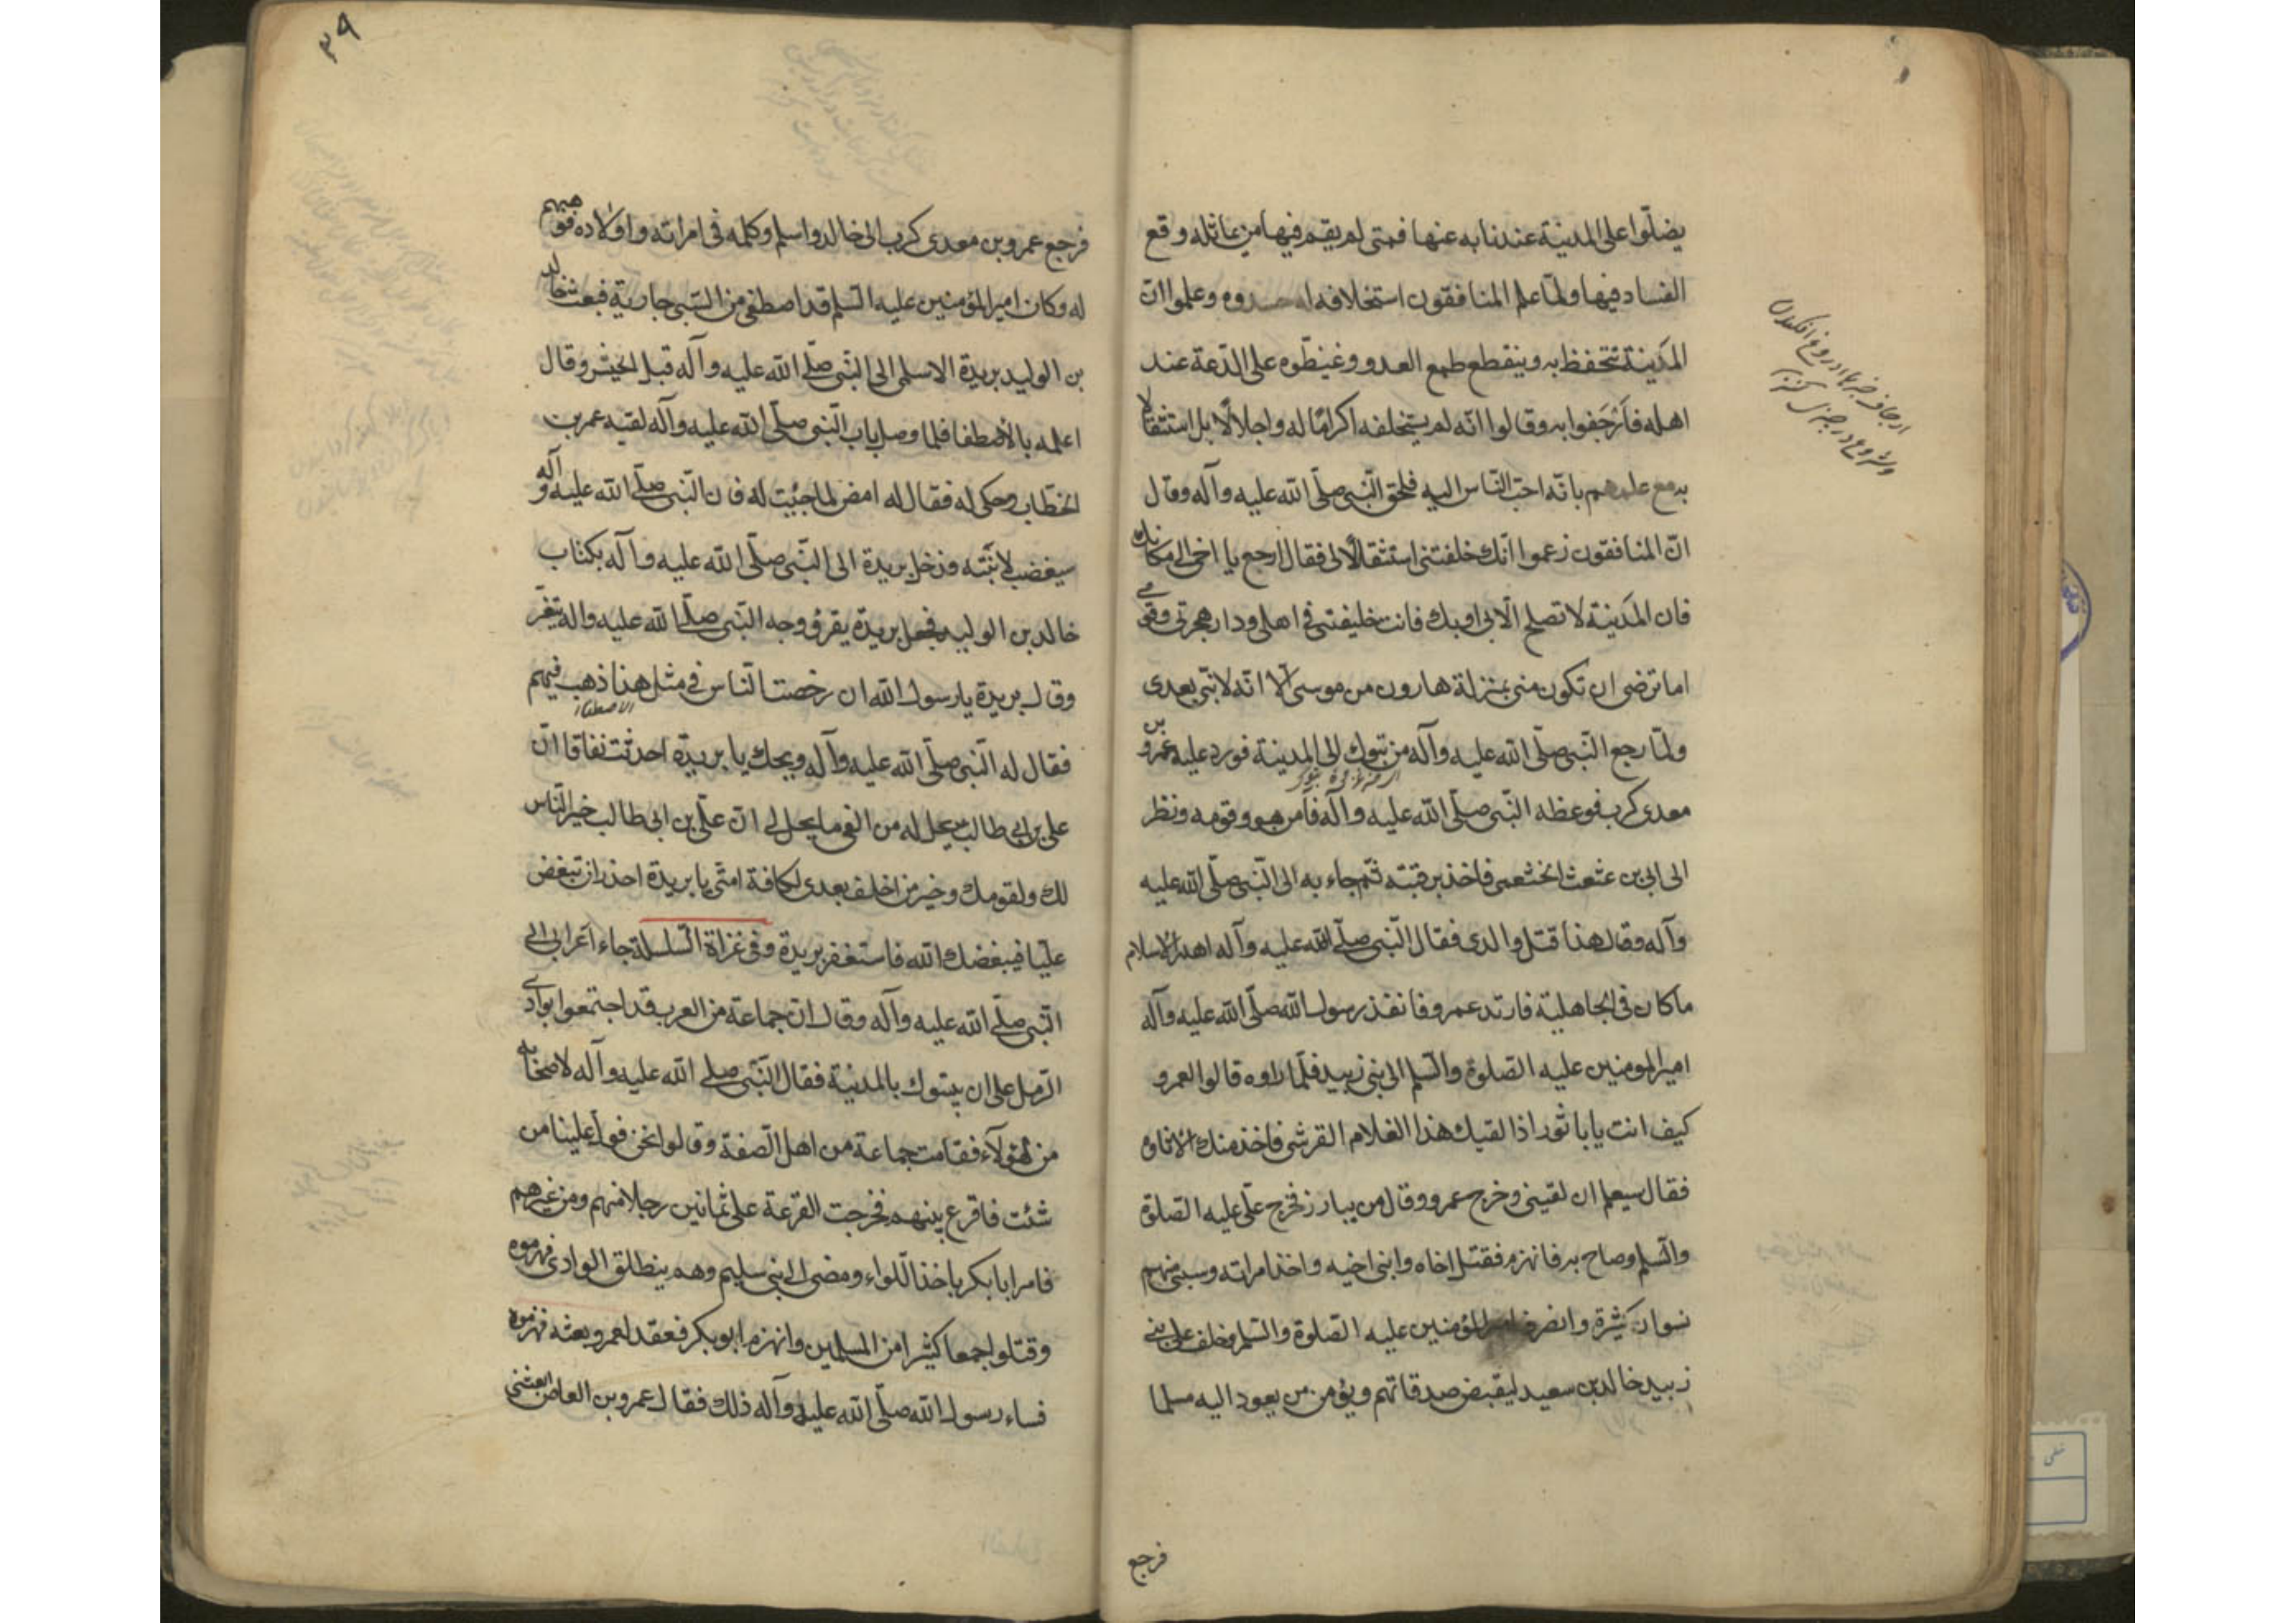 يضلّوا على المدينة عند نابه عنها فمتى لم يقم فيها من يماثله وقع
الفساد فيها ولمّا علم المنافقون استخلافه له حسدوه وعلموا انّ
المدينة تتحفظ به وينقطع طمع العدو وغبطوه على الدّعة عند
اهله فأرجَفوا به وقالوا انّه لم يستخلفه اكرامًا له واجلالًا بل استثقالا
به مع علمهم بانّه احبّ النّاس اليه فلحق النّبي صلّى الله عليه وآله وقال
انّ المنافقون زعموا انّك خلفتنى استثقالًا لى فقال ارجع يا اخى الى مكانك
فان المدينة لا تصلح الّا بى او بك فانت خليفتى فى اهلى ودار هجرتى وقومى
اما ترضى ان تكون منى بمنزلة هارون من موسى الّا انّه لا نبّى بعدى
ولمّا رجع النّبى صلّى الله عليه وآله من تبوك الى المدينة فورد عليه عمرو بن
از غزوة تبوك
معدى كرب فوعظه النّبى صلّى الله عليه وآله فآمن هو وقومه ونظر
الى ابىّ بن عثعث الخثعمى فاخذ برقبته ثمّ جاء به الى النّبى صلّى الله عليه
وآله وقال هذا قتل والدى فقال النّبى صلّى الله عليه وآله اهدر الاسلام
ما كان فى الجاهلية فارتد عمرو فانفذ رسول الله صلّى الله عليه وآله
امير المومنين عليه الصلوة والسّلم الى بنى زبيد فلمّا راوه قالوا لعمرو
كيف انت يا با ثور اذا لقيك هذا الغلام القرشى فاخذ منك الاتاوة
فقال سيعلم ان لقينى وخرج عمرو وقال من يبارز فخرج علّى عليه الصلوة
والسّلم وصاح به فانهزم فقتل اخاه وابنى اخيه واخذ امراته وسبى منهم
نسوان كثيرة وانصرف امير المؤمنين عليه الصلوة والسّلم وخلف على بنى
زبيد خالد بن سعيد ليقبض صدقاتهم ويؤمن من يعود اليه مسلما
فرجع
ارجاف خبرهاى دروغ افكندن
٣٩
فرجع عمرو بن معدى كرب الى خالد واسلم وكلمه فى امراته واولاده فوهبهم
له وكان امير المؤمنين عليه السّلم قد اصطفى من السّبى جارية فبعث خالد
بن الوليد بريدة الاسلمى الى النّبى صلّى الله عليه وآله قبل الجيش وقال
اعلمه بالاصطفا فلما وصل باب النّبى صلّى الله عليه وآله لقيه عمر بن
الخطّاب وحكى له فقال له امض لما جئت له فان النّبى صلّى الله عليه وآله
سيغضب لابنته فدخل بريدة الى النّبى صلّى الله عليه وآله بكتاب
خالد بن الوليد فجعل بريدة يقرؤ ووجه النّبى صلّى الله عليه واله يتغيّر
وقال بريدة يا رسول الله ان رخصت النّاس فى مثل هذا ذهب فيئهم
الاصطفاء
فقال له النّبى صلّى الله عليه وآله ويحك يا بريدة احدثت نفاقا انّ
على بن ابى طالب يحل له من الفى ما يحل لى انّ علّى بن ابى طالب خير النّاس
لك ولقومك وخير من اخلف بعدى لكافة امتّى يا بريدة احذر ان تبغض
عليّا فيبغضك الله فاستغفر بريدة وفى غزاة السّلسلة جاء اعرابى الى
النّبى صلّى الله عليه وآله وقال ان جماعة من العرب قد اجتمعوا بوادى
الرّمل على ان يبيتوك بالمدينة فقال النّبى صلى الله عليه وآله لاصحابه
من لهؤلآء فقامت جماعة من اهل الصّفة وقالوا نحن فولّ علينا من
شئت فاقرع بينهم فخرجت القرعة على ثمانين رجلا منهم ومن غيرهم
فامر ابا بكر باخذ اللّواء ومضى الى بنى سليم وهم ببطلق الوادى فهزموه
وقتلوا جمعا كثيرا من المسلمين وانهزم ابو بكر فعقد لعمر وبعثه فهزموه
فساء رسول الله صلّى الله عليه وآله ذلك فقال عمرو بن العاص ابعثنى